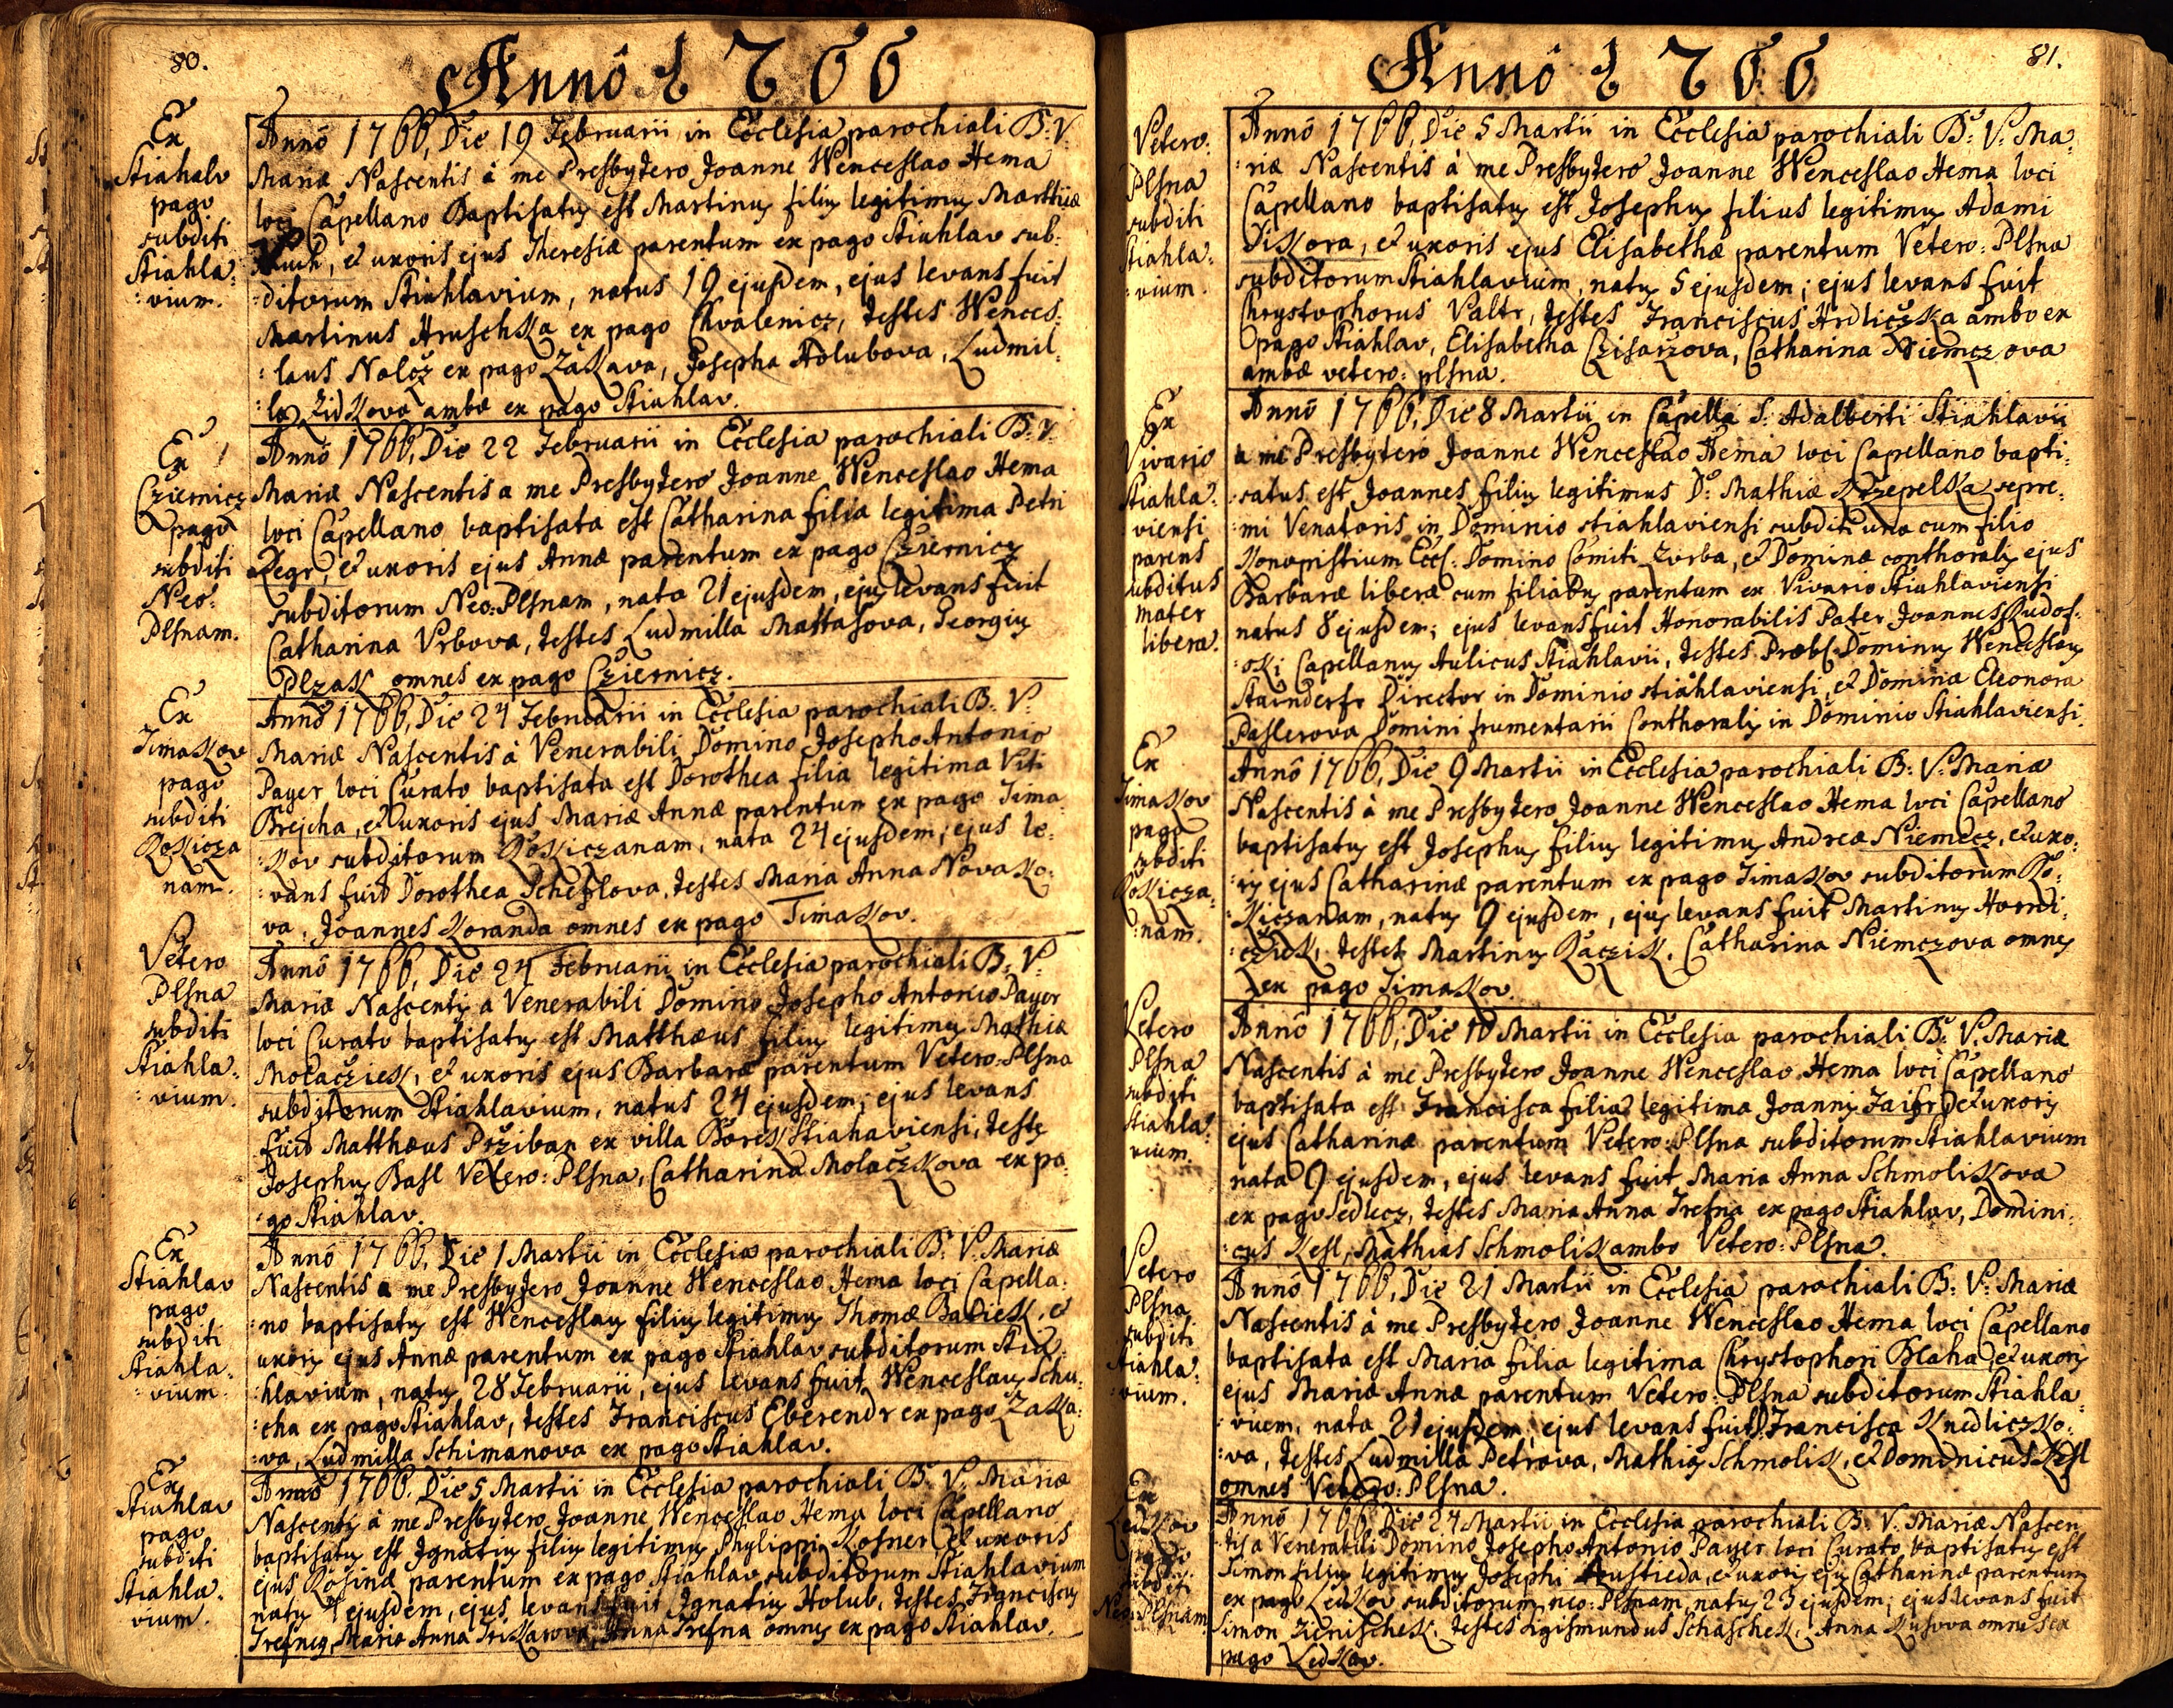 80.
Annô 1766
Ex
Stiahlav
pago
subditi
Stiahla:
:vium.
Annô 1766, Die 19 Februarii in Ecclesia parochiali B: V:
Mariæ Nascentis à me Presbytero Joanne Wenceslao Hema
loci Capellano Baptisatus est Martinus filius legitimus
et uxoris ejus Theresiæ parentum ex pago Stiahlav sub:
:ditorum Stiahlavium, natus 19 ejusdem, ejus levans fuit
Martinus Hruschka ex pago Chvalenicz, testes Wences:
:laus Nolcz ex pago Zakava, Josepha Holubova, Ludmil:
:la Zidkova ambæ ex pago Stiahlav.
Ex
Cziernicz
pago
subditi
Neo:
Plsnam.
Annô 1766, Die 22 Februarii in Ecclesia parochiali B: V:
Mariæ Nascentis a me Presbytero Joanne Wenceslao Hema
loci Capellano baptisata est Catharina filia legitima Petri
Regr, et uxoris ejus Annæ parentum ex pago Cziernicz
subditorum Neo: Plsnam, nata 21 ejusdem, ejus levans fuit
Catharina Vrbova, testes Ludmilla Mattasova, Georgius
Plzak omnes ex pago Cziernicz.
Ex
Timakov
pago
subditi
Rokicza
nam.
Annô 1766, Die 24 Februarii in Ecclesia parochiali B: V:
Mariæ Nascentis à Venerabili Domino Josepho Antonio
Payer loci Curato baptisata est Dorothea filia legitima Viti
Brejcha, et uxoris ejus Mariæ Annæ parentum ex pago Tima
:kov subditorum Rokiczanam, nata 24 ejusdem; ejus le:
:vans fuit Dorothea Scheflova, testes Maria Anna Novako:
va, Joannes Koranda omnes ex pago Timakov.
Vetero
Plsna
subditi
Stiahla:
:vium.
Annô 1766, Die 24 Februarii in Ecclesia parochiali B: V:
Mariæ Nascentis a Venerabili Domino Josepho Antonio Payer
loci Curato baptisatus est Matthæus filius legitimus Mathiæ
Molacziek, et uxoris ejus Barbaræ parentum Vetero: Plsna
subditorum Stiahlavium, natus 24 ejusdem; ejus levans
fuit Matthæus Prziban ex villa Borek Stiahaviensi, testes
Josephus Basl Vetero: Plsna, Catharina Molaczkova ex pa
:go Stiahlav.
Ex
Stiahlav
pago
subditi
Stiahla:
:vium.
Annô 1766, Die 1 Martii in Ecclesia parochiali B: V: Mariæ
Nascentis a me Presbytero Joanne Wenceslao Hema loci Capella:
:no baptisatus est Wenceslaus filius legitimus Thomæ Babiek, et
uxoris ejus Annæ parentum ex pago Stiahlav subditorum Stia:
:hlavium, natus 28 Februarii, ejus levans fuit Wenceslaus Schu:
:cha ex pago Stiahlav, testes Franciscus Eberendr ex pago Zaka:
:va, Ludmilla Schimanova ex pago Stiahlav.
Ex
Stiahlav
pago
subditi
Stiahla:
vium.
Annô 1766. Die 5 Martii in Ecclesia parochiali B: V: Mariæ
Nascentis à me Presbytero Joanne Wenceslao Hema loci Capellano
baptisatus est Ignatius filius legitimus Phylippi Kosner, et uxoris
ejus Rosinæ parentum ex pago Stiahlav subditorum Stiahlavium
natus 4 ejusdem, ejus levans fuit Ignatius Holub, testes Franciscus
Trefney, Maria Anna Anna Trefna omnes ex pago Stiahlav.
81.
Annô 1766
Vetero:
Plsna
subditi
Stiahla:
:vium.
Annô 1766, Die 5 Martii in Ecclesia parochiali B: V: Ma:
:riæ Nascentis à me Presbytero Joanne Wenceslao Hema loci
Capellano baptisatus est Josephus filius legitimus Adami
Diskora, et uxoris ejus Elisabethæ parentum Vetero: Plsna
subditorum Stiahlavium, natus 5 ejusdem; ejus levans fuit
Chrystophorus Valtr, testes Franciscus Hrdliczka ambo ex
pago Stiahlav, Elisabetha Czisarzova, Catharina Niemczova
ambæ vetero: plsna.
Ex
Vivario
Stiahla:
viensi
parens
subditus
mater
libera.
Annô 1766, Die 8 Martii in Capella S: Adalberti Stiahlavii
a me Presbytero Joanne Wenceslao Hema loci Capellano bapti:
:satus est Joannes filius legitimus D: Mathiæ Krzepelka supre:
:mi Venatoris in Dominio stiahlaviensi subditi una cum filio
Konopistium Domino Comiti Vrba, et Dominæ conthoralis ejus
Barbaræ liberæ cum filiabus parentum ex Vivario Stiahlaviensi
natus 8 ejusdem; ejus levans fuit Honorabilis Pater Joannes Rudof:
:ski Capellanus Aulicus Stiahlavii, testes Dominus Wenceslaus
Staindorfr Director in Dominio stiahlaviensi, et Domina Eleonora
Paslerova Domini frumentarii Conthoralis in Dominio Stiahlaviensi.
Ex
Timakov
pago
subditi
Rokicza:
:nam.
Annô 1766, Die 9 Martii in Ecclesia parochiali B: V: Mariæ
Nascentis à me Presbytero Joanne Wenceslao Hema loci Capellano
baptisatus est Josephus filius legitimus Andreæ Niemecz, et uxo:
:ris ejus Catharinæ parentum ex pago Timakov subditorum Ro:
:kiczanam, natus 9 ejusdem, ejus levans fuit Martinus
testes Martinus Raczik, Catharina Niemczova omnes
ex pago Timakov.
Vetero
Plsna
subditi
Stiahla:
vium.
Annô 1766, Die 10 Martii in Ecclesia parochiali B: V: Mariæ
Nascentis à me Presbytero Joanne Wenceslao Hema loci Capellano
baptisata est Francisca filia legitima Joannis Faifr et uxoris
ejus Catharinæ parentum Vetero: Plsna subditorum Stiahlavium
nata 9 ejusdem, ejus levans fuit Maria Anna Schmolikova
ex pago Sedlecz, testes Maria Anna Trefna ex pago Stiahlav, Domini:
:cus Kesl, Mathias Schmolik ambo Vetero: Plsna.
Vetero
Plsna
subditi
Stiahla:
:vium.
Annô 1766, Die 21 Martii in Ecclesia parochiali B: V: Mariæ
Nascentis à me Presbytero Joanne Wenceslao Hema loci Capellano
baptisata est Maria filia legitima Chrystophori Blaha et uxoris
ejus Mariæ Annæ parentum Vetero: Plsna subditorum Stiahla:
:vium, nata 21 ejusdem, ejus levans fuit Francisca Knedliczko:
:va, testes Ludmilla Petrova, Mathias Schmolik, et Dominicus Kesl
omnes Vetero: Plsna.
Ex
Ledkov
pago
subditi
Neo: Plsnam
Annô 1766 Die 24 Martii in Ecclesia parochiali B: V: Mariæ Nascen
:tis a Venerabili Domino Josepho Antonio Payer loci Curato baptisatus est
Simon filius legitimus Josephi et uxoris ejus Catharinæ parentum
ex pago Ledkov subditorum neo: Plsnam, natus 23 ejusdem; ejus levans fuit
Simon testes Sigismundus Schaschek, Anna Kusova omnes ex
pago Ledkov.